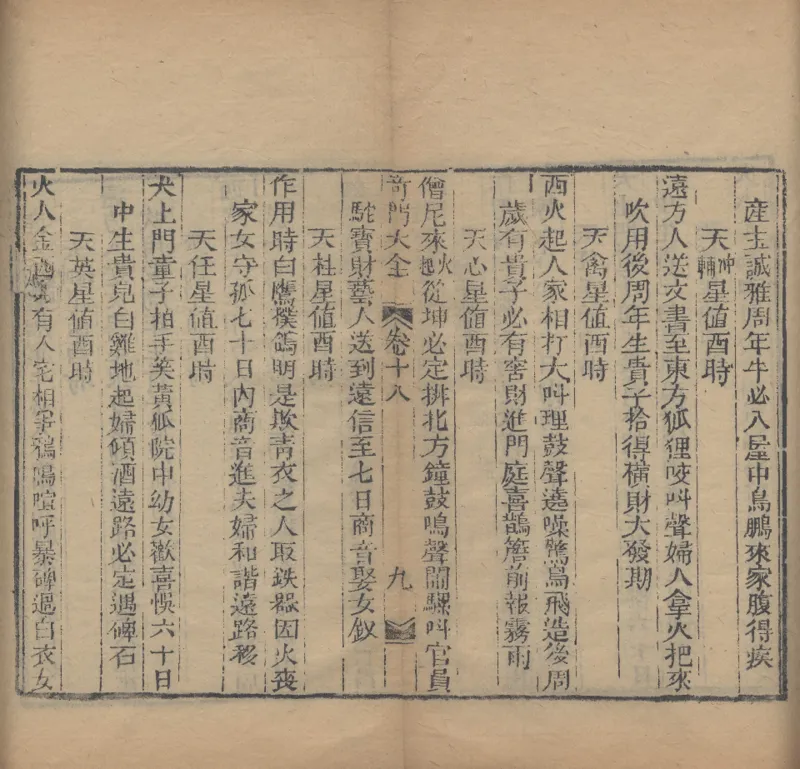 產主誠雅周年牛必入屋中鳥鵬來家腹得疾
天冲輔星值酉時
遠方人送文書至東方狐狸咬叫聲婦人拿火把來
吹用後周年生貴子拾得橫財大發期
天禽星值酉時
西火起人家相打大叫理鼓聲遶噪鷔鳥飛造後周
歲有貴子必有害財進門庭喜鵲簷前報霧雨
天心星值酉時
僧尼來火從坤必定排北方鐘鼓鳴聲鬧騾叫官員
奇門大全 卷十八 九
駝寶財藝人送到遠信至七日商音娶女釵
天柱星值酉時
作用時白鷹撲鴿明是欺青衣之人取鉄器因火喪
家女守孤七十日內商音進夫婦和諧遠路移
天任星值酉時
犬上門童子拍手矣黃狐院中幼女歡喜悞六十日
中生貴兒白雞地起婦傾酒遠路必定遇碑石
天英星值酉時
火人金有人宅相爭鴉鳴喧呼暴碑過白衣女